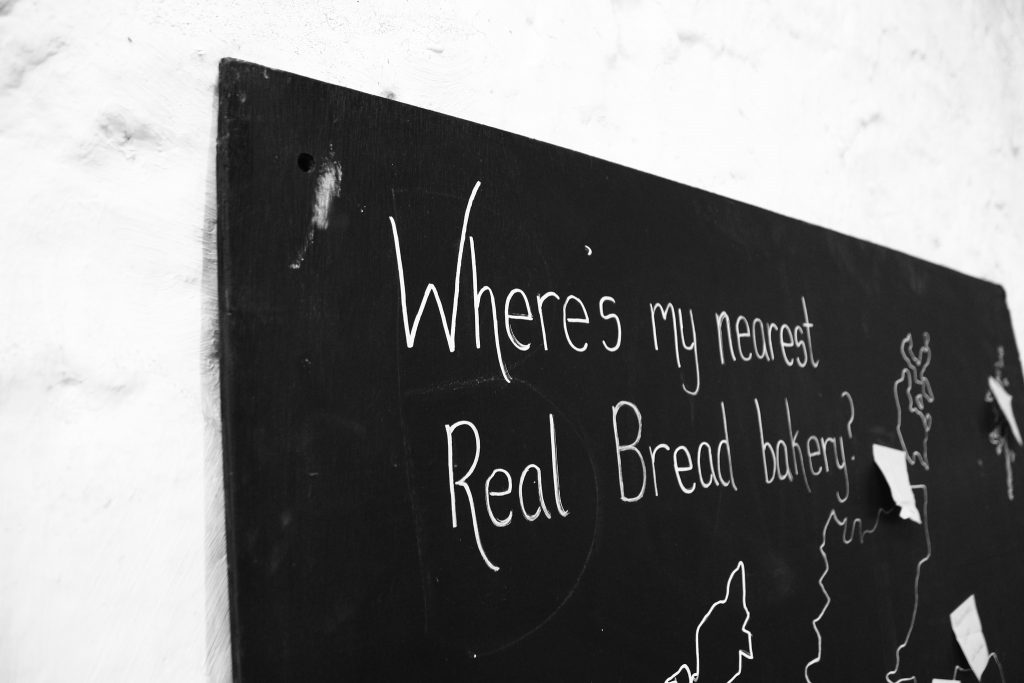 Where's my nearest
Real Bread bakery?